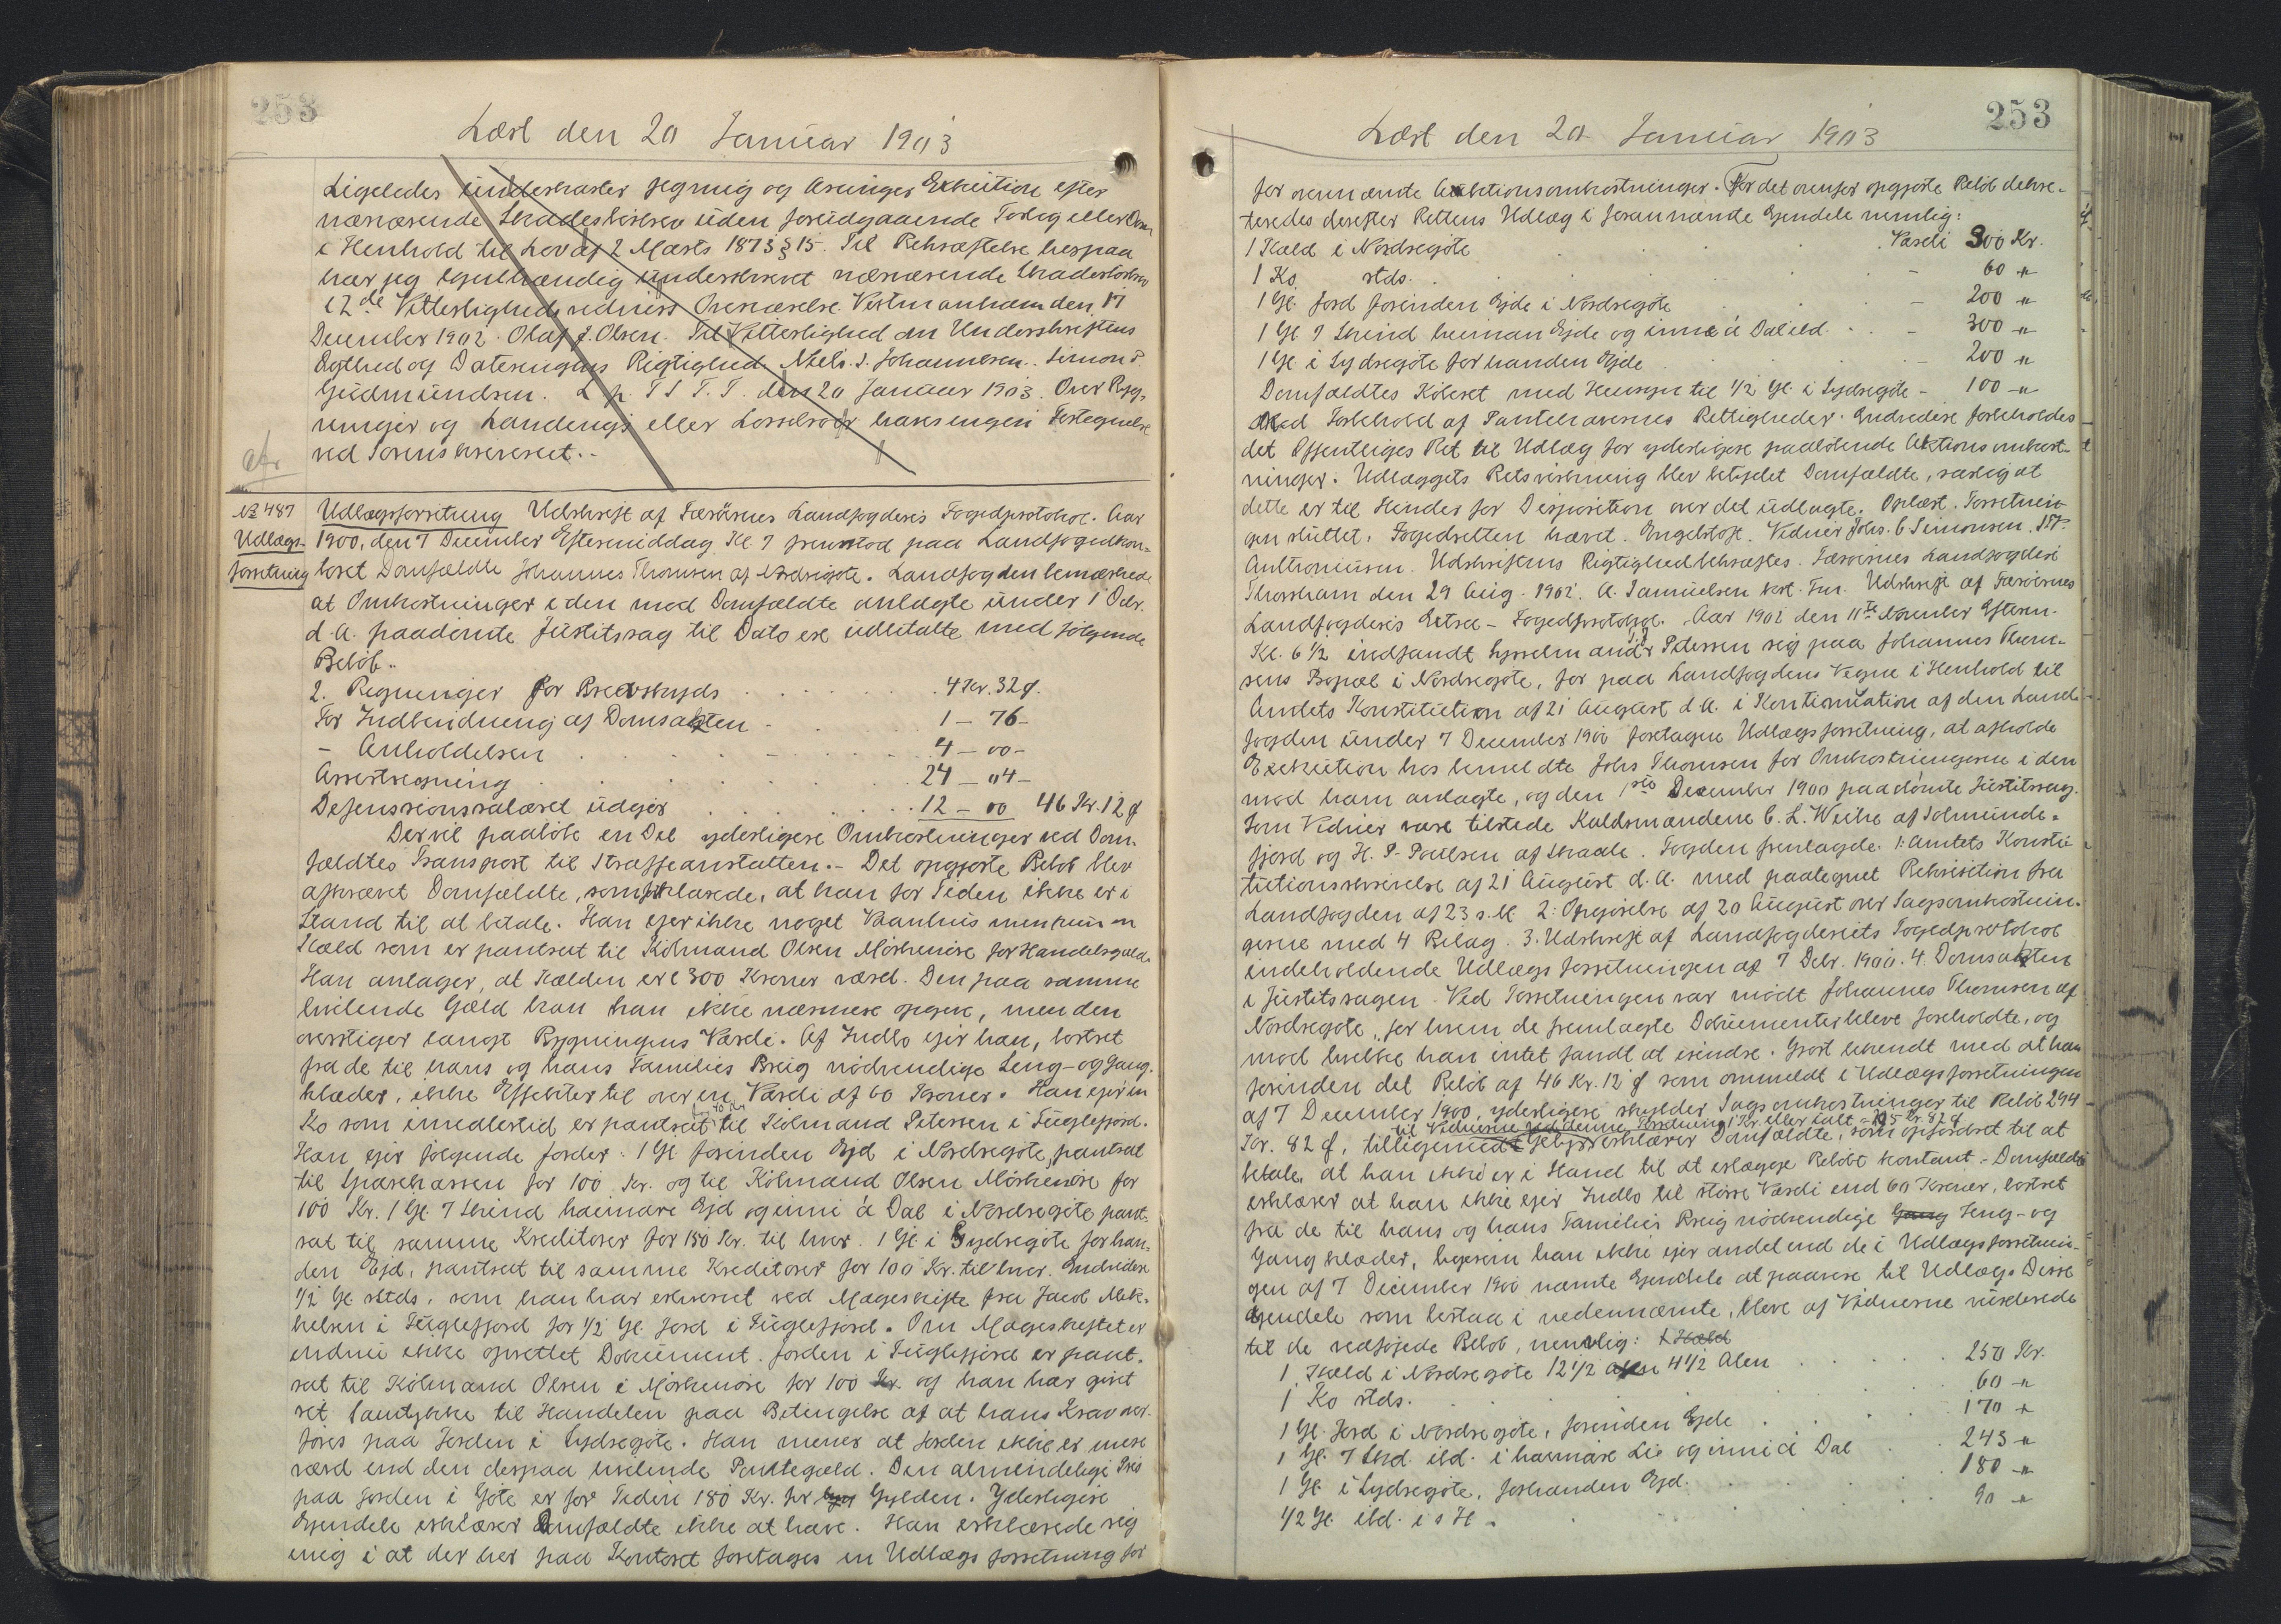 253
Læst den 20 Januar 1903
Ligeledes underkaster jeg mig og Arvinger Exekution efter
nærværende Skadesløsbrev uden forudgaaende Forlig eller Dom
i Henhold til Lov af 2 Marts 1873 § 15. Til Bekræftelse herpaa
har jeg egenhændig underskrevet nærværende Skadesløsbrev
i 2de Vitterlighedsvidners Overværelse. Vestmanhavn den 17
December 1902. Olaf J. Olsen. Til Vitterlighed om Underskriftens
Ægthed og Dateringens Rigtighed. Niels. J. Johannesen. Simon P.
Gudmundsen. L p. T S T. T. den 20 Januar 1903. Over Byg-
ninger og Landings eller Losseboder haves ingen Fortegnelse
ved Sorenskriveriet.-
afr
No 487
Udlægs-
forretning
Udlægsforretning Udskrift af Færöernes Landfogderis Fogedprotokol. Aar
1900, den 7 December Eftermiddag Kl. 7 fremstod paa Landfogedkon-
toret Domfældte Johannes Thomsen af Nordregøte. Landfogden bemærkede
at Omkostninger i den mod Domfældte anlagte under 1 Debr.
d.A. paadømte Justitssag til Dato ere udbetalte med følgende
Beløb.-
2. Regninger for Brevskyds . . . 4 Kr. 32 ø.
For Indbindning af Domsakten - 1 - 76 -
- Anholdelsen . . . 4 - 00 -
Arrestregning . . . 24 - 04 -
Defensionssalæret udgjør . . . 12 - 00 46 Kr. 12 ø
Der vil paaløbe en Del yderligere Omkostninger ved Dom-
fældtes Transport til Straffeanstalten.- Det opgjorte Beløb blev
afkrævet Domfældte, som forklarede, at han for Tiden ikke er i
Stand til at betale. Han ejer ikke noget Vaanhus men kun en
Kæld som er pantsat til Kölmand Olsen Mörkenöre for Handelsgæld.
Han antager, at Kælden er c 300 Kroner værd. Den paa samme
hvilende Gæld kan han ikke nærmere opgive, men den
overstiger langt Bygningens Værdi. Af Indbo ejer han, bortset
fra de til hans og hans Families Brug nödvendige Seng- og Gang-
klæder, ikke Effekter til over en Værdi af 60 Kroner. Han ejer en
Ko som imedlertid er pantsat for 40 Kr til Kölmand Petersen i Fuglefjord.
Han ejer følgende Jorder: 1 Gl forinden Ejd i Nordregöte, pantsat
til Sparekassen for 100 Kr. og til Kölmand Olsen Mörkenöre for
100 Kr. 1 Gl. 7 Skind haimare Ejd og inni á Dal i Nordregöte pant-
sat til samme Kreditorer for 150 Kr. til hver. 1 Gl i Sydregöte forhan-
den Ejd, pantsat til samme Kreditorer for 100 Kr. til hver. Endvidere
1/2 Gl. sstds, som han har erhvervet ved Mageskifte fra Jacob Mik-
kelsen i Fuglefjord for 1/2 Gl. Jord i Fuglefjord. Om Mageskiftet er
endnu ikke oprettet Dokument. Jorden i Fuglefjord er pant-
sat til Kölmand Olsen i Mörkenöre for 100 Kr. og han har givet
sit Samtykke til Handelen paa Betingelse af at hans Krav over-
føres paa Jorden i Sydregöte. Han mener at Jorden ikke er mere
værd end den derpaa hvilende Pantegæld. Den almindelige Pris
paa Jorden i Göte er for Tiden 180 Kr. pr Gylden. Yderligere
Ejendele erklærer Domfældte ikke at have. Han erklærede sig
enig i at der her paa Kontoret foretages en Udlægsforretning for
253
Læst den 20 Januar 1903
for ovennævnte Auktionsomkostninger. For det ovenfor opgjorte Beløb dekre-
teredes derefter Rettens Udlæg i forannævnte Ejendele nemlig:
1 Kæld i Nordregöte . . . Værdi 300 Kr.
1 Ko sstds. . . . - 60 "
1 Gl. Jord forinden Ejde i Nordregöte . . . - 200 "
1 Gl 7 Skind heiman Ejde og inni á Dal ibd. . . - 300 "
1 Gl i Sydregöte forhanden Ejde . . . - 200 "
Domfældtes Köberet med Hensyn til 1/2 Gl. i Sydregöte - 100 "
Med Forbehold af Panthavernes Rettigheder. Endvidere forbeholdes
det Offentliges Ret til Udlæg for yderligere paaløbende Aktionsomkost-
ninger. Udlæggets Retsvirkning blev betydet Domfældte, særlig at
dette er til Hinder for Disposition over det udlagte. Oplæst. Forretnin-
gen sluttet. Fogedretten hævet. Engelstoft. Vidner Johs. C Simonsen. J P
Anthoniusen. Udskriftens Rigtighed bekræftes. Færöernes Landfogderi
Thorshavn den 29 Aug. 1902. A. Samuelsen kst. Fm. Udskrift af Færöernes
Landfogderis Extra-Fogedprotokol. Aar 1902 den 11te November Efterm.
Kl. 6 1/2 indfandt Sysselmand Petersen sig paa Johannes Thom-
sens Bopæl i Nordregöte, for paa Landfogdens Vegne i Henhold til
Amtets Konstitution af 21 August d A. i Kontinuation af den Land-
fogden under 7 December 1900 foretagne Udlægsforretning, at afholde
Exekution hos bemeldte Johs Thomsen for Omkostningerne i den
mod ham anlagte, og den 1ste December 1900 paadömte Justitssag.
Som Vidner vare tilstede Kaldsmændene C. L. Weihe af Solmunde-
fjord og H. P. Poulsen af Skaale. Fogden fremlagde. 1: Amtets Konsti-
tutionsskrivelse af 21 August d. A. med paategnet Rekvisition fra
Landfogden af 23 s.M. 2: Opgjørelse af 20 August over Sagsomkostnin-
gerne med 4 Bilag. 3. Udskrift af Landfogderiets Fogedprotokol
indeholdende Udlægsforretningen af 7 Debr. 1900. 4. Domsakten
i Justitssagen. Ved Forretningen var mödt Johannes Thomsen af
Nordregöte, for hvem de fremlagte Dokumenter bleve foreholdte, og
mod hvilke han intet fandt at erindre. Gjort bekendt med at han
forinden det Beløb af 46 Kr. 12 ø som ommeldt i Udlægsforretningen
af 7 December 1900, yderligere skylder Sagsomkostninger til Beløb 294
til Vidnerne ved denne Forretning 1 Kr. eller ialt 295 Kr. 82 ø
Kr. 82 ø, tilligemed Gebyr erklærer Domfældte, som opfordret til at
betale, at han ikke er i Stand til at erlægge Beløbet kontant.- Domfældte
erklærer at han ikke ejer Indbo til større Værdi end 60 Kroner, bortset
fra de til hans og hans Families Brug nødvendige Gang Seng- og
Gangklæder, ligesom han ikke ejer andet end de i Udlægsforretnin-
gen af 7 December 1900 nævnte Ejendele at paavise til Udlæg. Disse
Ejendele som bestaa i nedennævnte, bleve af Vidnerne vurderede
til de vedföjede Beløb, nemlig: 1 Kæld
1 Kæld i Nordregöte 12 1/2 Alen 4 1/2 Alen . . . 250 Kr.
1 Ko sstds. . . . 60 "
1 Gl. Jord i Nordregöte, forinden Ejde . . . 170 "
1 Gl. 7 Skd. ibd. i haimare Lio og inni á Dal . . . 243 "
1 Gl. i Sydregöte, forhanden Ejd. . . . 180 "
1/2 Gl. ibd. i s H - . . . 90 "